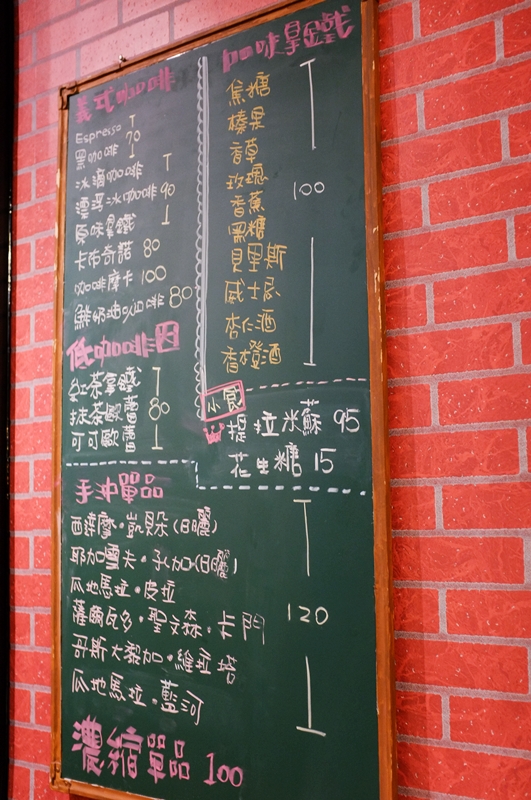 義式咖啡
Espresso
黑咖啡 70
冰滴咖啡
漂浮冰咖啡 90
原味拿鐵
卡布奇諾 80
咖啡摩卡 100
鮮奶油咖啡 80
低咖啡因
紅茶拿鐵
抹茶歐蕾 80
可可歐蕾
咖啡拿鐵
焦糖
榛果
香草
玫瑰
香蕉 100
黑糖
貝里斯
威士忌
杏仁酒
香橙酒
小食
提拉米蘇 95
花生糖 15
手沖單品
西達摩·凱貝朵(日曬)
耶加雪夫·孔加(日曬)
瓜地馬拉·皮拉
薩爾瓦多·聖文森·卡門 120
哥斯大黎加·維拉塔
瓜地馬拉·藍河
濃縮單品 100